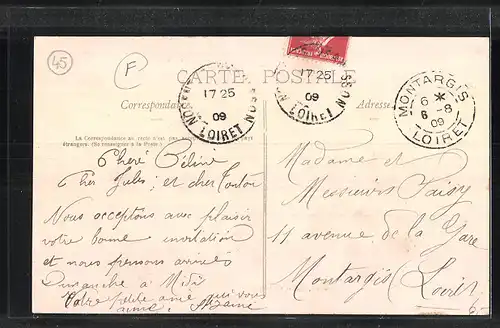 45
F
CARTE POSTALE
Correspondance
Adresse
17 25
09
LOIRET
17 25
09
LOIRET
MONTARGIS
6 *
8 - 8
09
LOIRET
La Correspondance au recto n'est pas
étrangers. (Se renseigner à la Poste.)
Chère Céline
Cher Jules, et cher Tonton
Nous acceptons avec plaisir
votre bonne invitation
et nous pensons arriver
Dimanche à Midi
Votre petite amie qui vous
aime.
Madame et
Messieurs
11 avenue de la Gare
Montargis
(Loiret